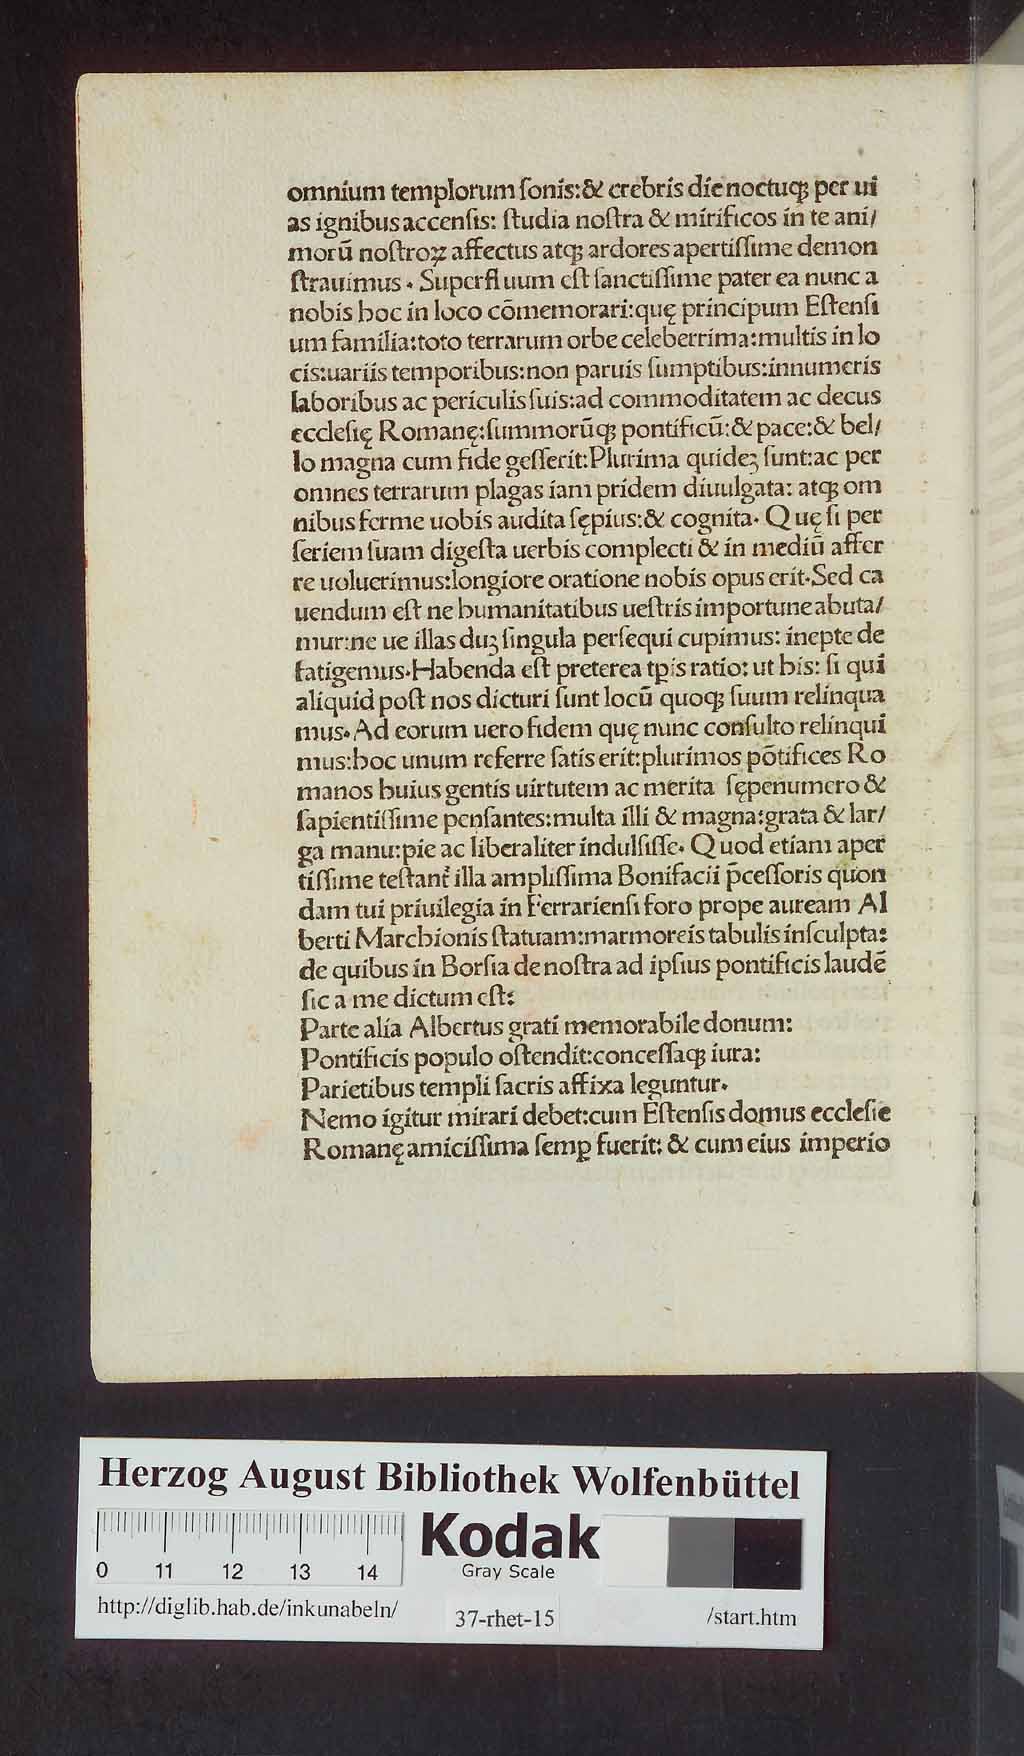 omnium templorum ſonis:& crebris die noctuqꝫ per ui
as ignibus accenſis: ſtudia noſtra & mirificos in te ani/
morū noſtroꝝ affectus atqꝫ ardores apertiſſime demon
ſtrauimus . Superfluum eſt ſanctiſſime pater ea nunc a
nobis hoc in loco cōmemorari:quę principum Eſtenſi
um familia:toto terrarum orbe celeberrima:multis in lo
cis:uariis temporibus:non paruis ſumptibus:innumeris
laboribus ac periculis ſuis:ad commoditatem ac decus
eccleſię Romanę:ſummorūqꝫ pontificū:& pace:& bel/
lo magna cum fide geſſerit:Plurima quideꝫ ſunt:ac per
omnes terrarum plagas iam pridem diuulgata: atqꝫ om
nibus ferme uobis audita ſępius:& cognita. Quę ſi per
ſeriem ſuam digeſta uerbis complecti & in mediū affer
re uoluerimus:longiore oratione nobis opus erit.Sed ca
uendum eſt ne humanitatibus ueſtris importune abuta/
mur:ne ue illas duꝫ ſingula perſequi cupimus: inepte de
fatigemus.Habenda eſt preterea tꝑis ratio: ut his: ſi qui
aliquid poſt nos dicturi ſunt locū quoqꝫ ſuum relinqua
mus.Ad eorum uero fidem quę nunc conſulto relinqui
mus:hoc unum referre ſatis erit:plurimos pōtifices Ro
manos huius gentis uirtutem ac merita ſępenumero &
ſapientiſſime penſantes:multa illi & magna:grata & lar/
ga manu:pie ac liberaliter indulſiſſe. Quod etiam aper
tiſſime teſtant̃ illa ampliſſima Bonifacii p̄ceſſoris quon
dam tui priuilegia in Ferrarienſi foro prope auream Al
berti Marchionis ſtatuam:marmoreis tabulis inſculpta:
de quibus in Borſia de noſtra ad ipſius pontificis laudē
ſic a me dictum eſt:
Parte alia Albertus grati memorabile donum:
Pontificis populo oſtendit:conceſſaqꝫ iura:
Parietibus templi ſacris affixa leguntur.
Nemo igitur mirari debet:cum Eſtenſis domus eccleſie
Romanę amiciſſima ſemꝑ fuerit: & cum eius imperio
Herzog August Bibliothek Wolfenbüttel
Kodak
Gray Scale
0 11 12 13 14
http://diglib.hab.de/inkunabeln/ 37-rhet-15 /start.htm